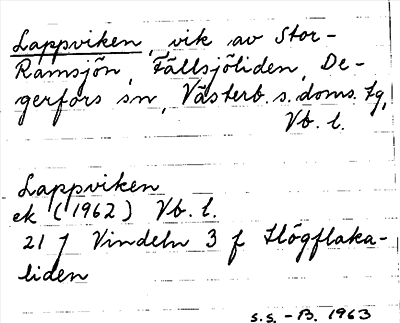 Lappviken, vik av Stor-
Ramsjön, Fällsjöliden, De-
gerfors sn, Västerb. s. doms. tg,
Vb. l.
Lappviken
ek (1962) Vb. l.
21 J Vindeln 3 f Högflaka-
liden
S.S. - B. 1963